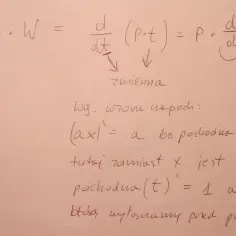 · W = d/dt (p·t) = p · d/d
zmienna
wg. wzoru na poch:
(ax)' = a bo pochodna
tutaj zamiast x jest
pochodna (t)' = 1 a
którą wyłączamy przed p